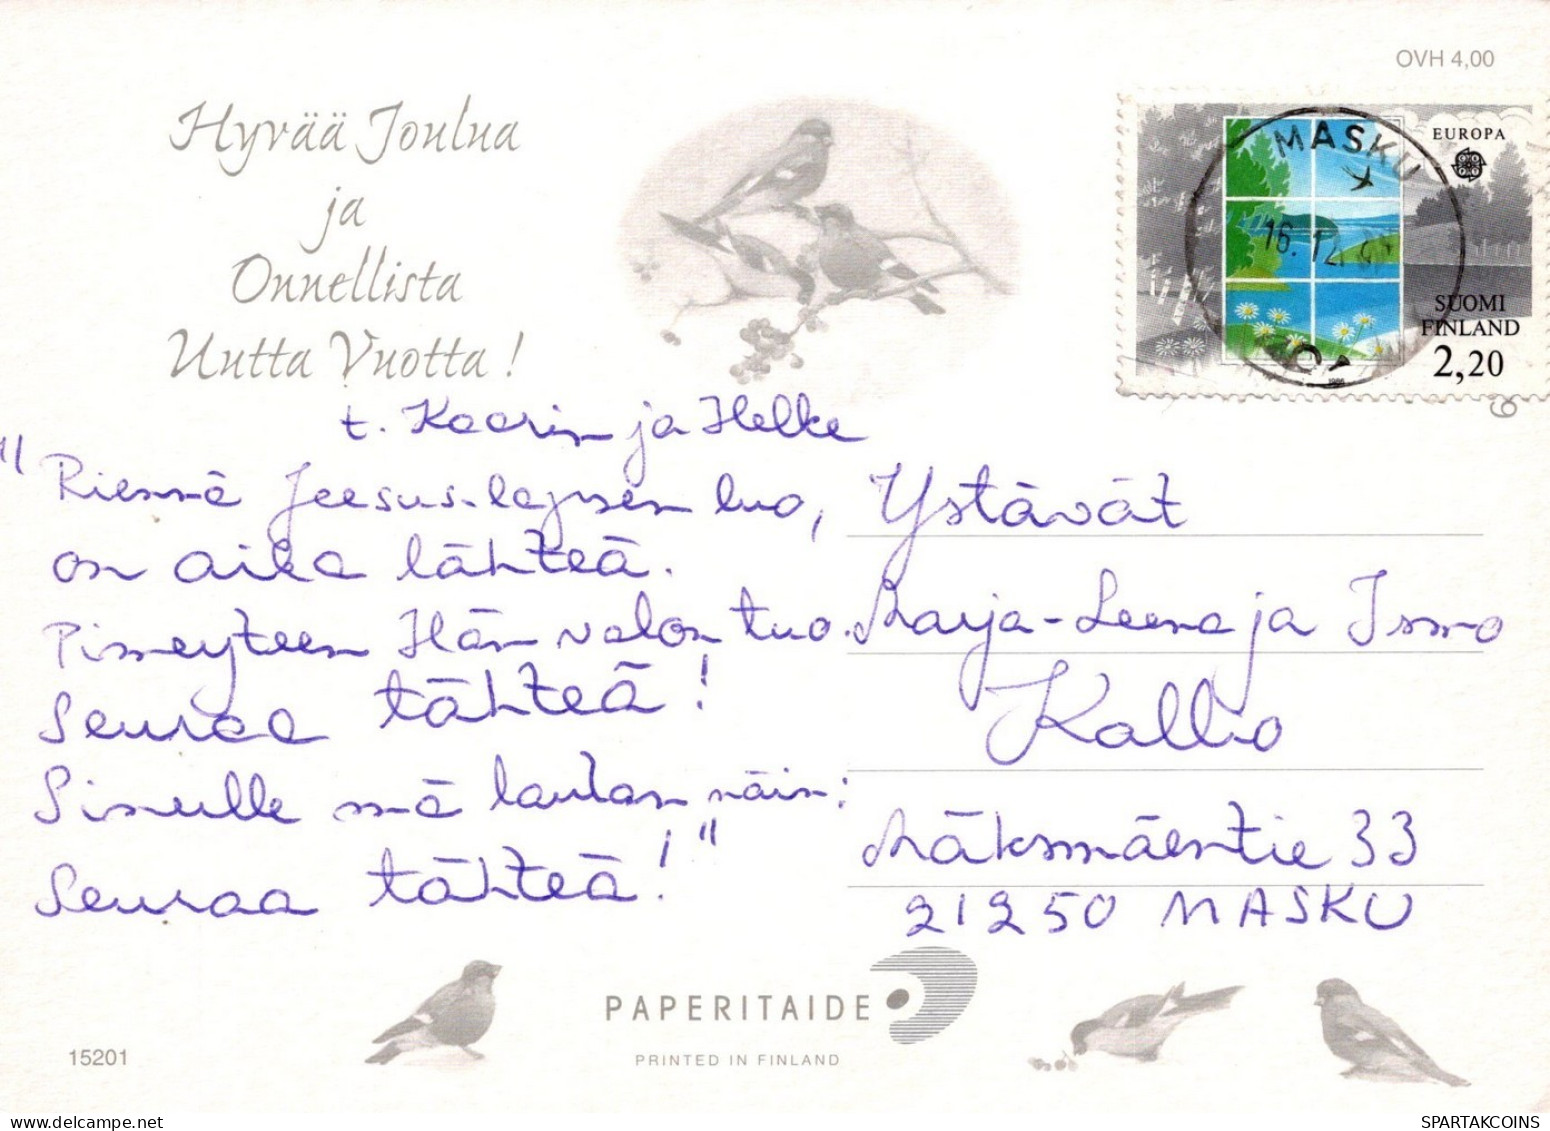 OVH 4,00
Hyvää Joulua
ja
Onnellista
Uutta Vuotta!
MASKU
16.12.
EUROPA
SUOMI
FINLAND
2,20
1986
t. Kaarin ja Helke
"Riennä Jeesus-lapsen luo,
on aika lähteä.
Pimeyteen Hän valon tuo.
Seuraa tähteä!
Sinulle mä laulan näin:
Seuraa tähteä!"
Ystävät
Marja-Leena ja Ismo
Kallio
Mäksmäentie 33
21250 MASKU
PAPERITAIDE
PRINTED IN FINLAND
15201
SPARTAKCOINS